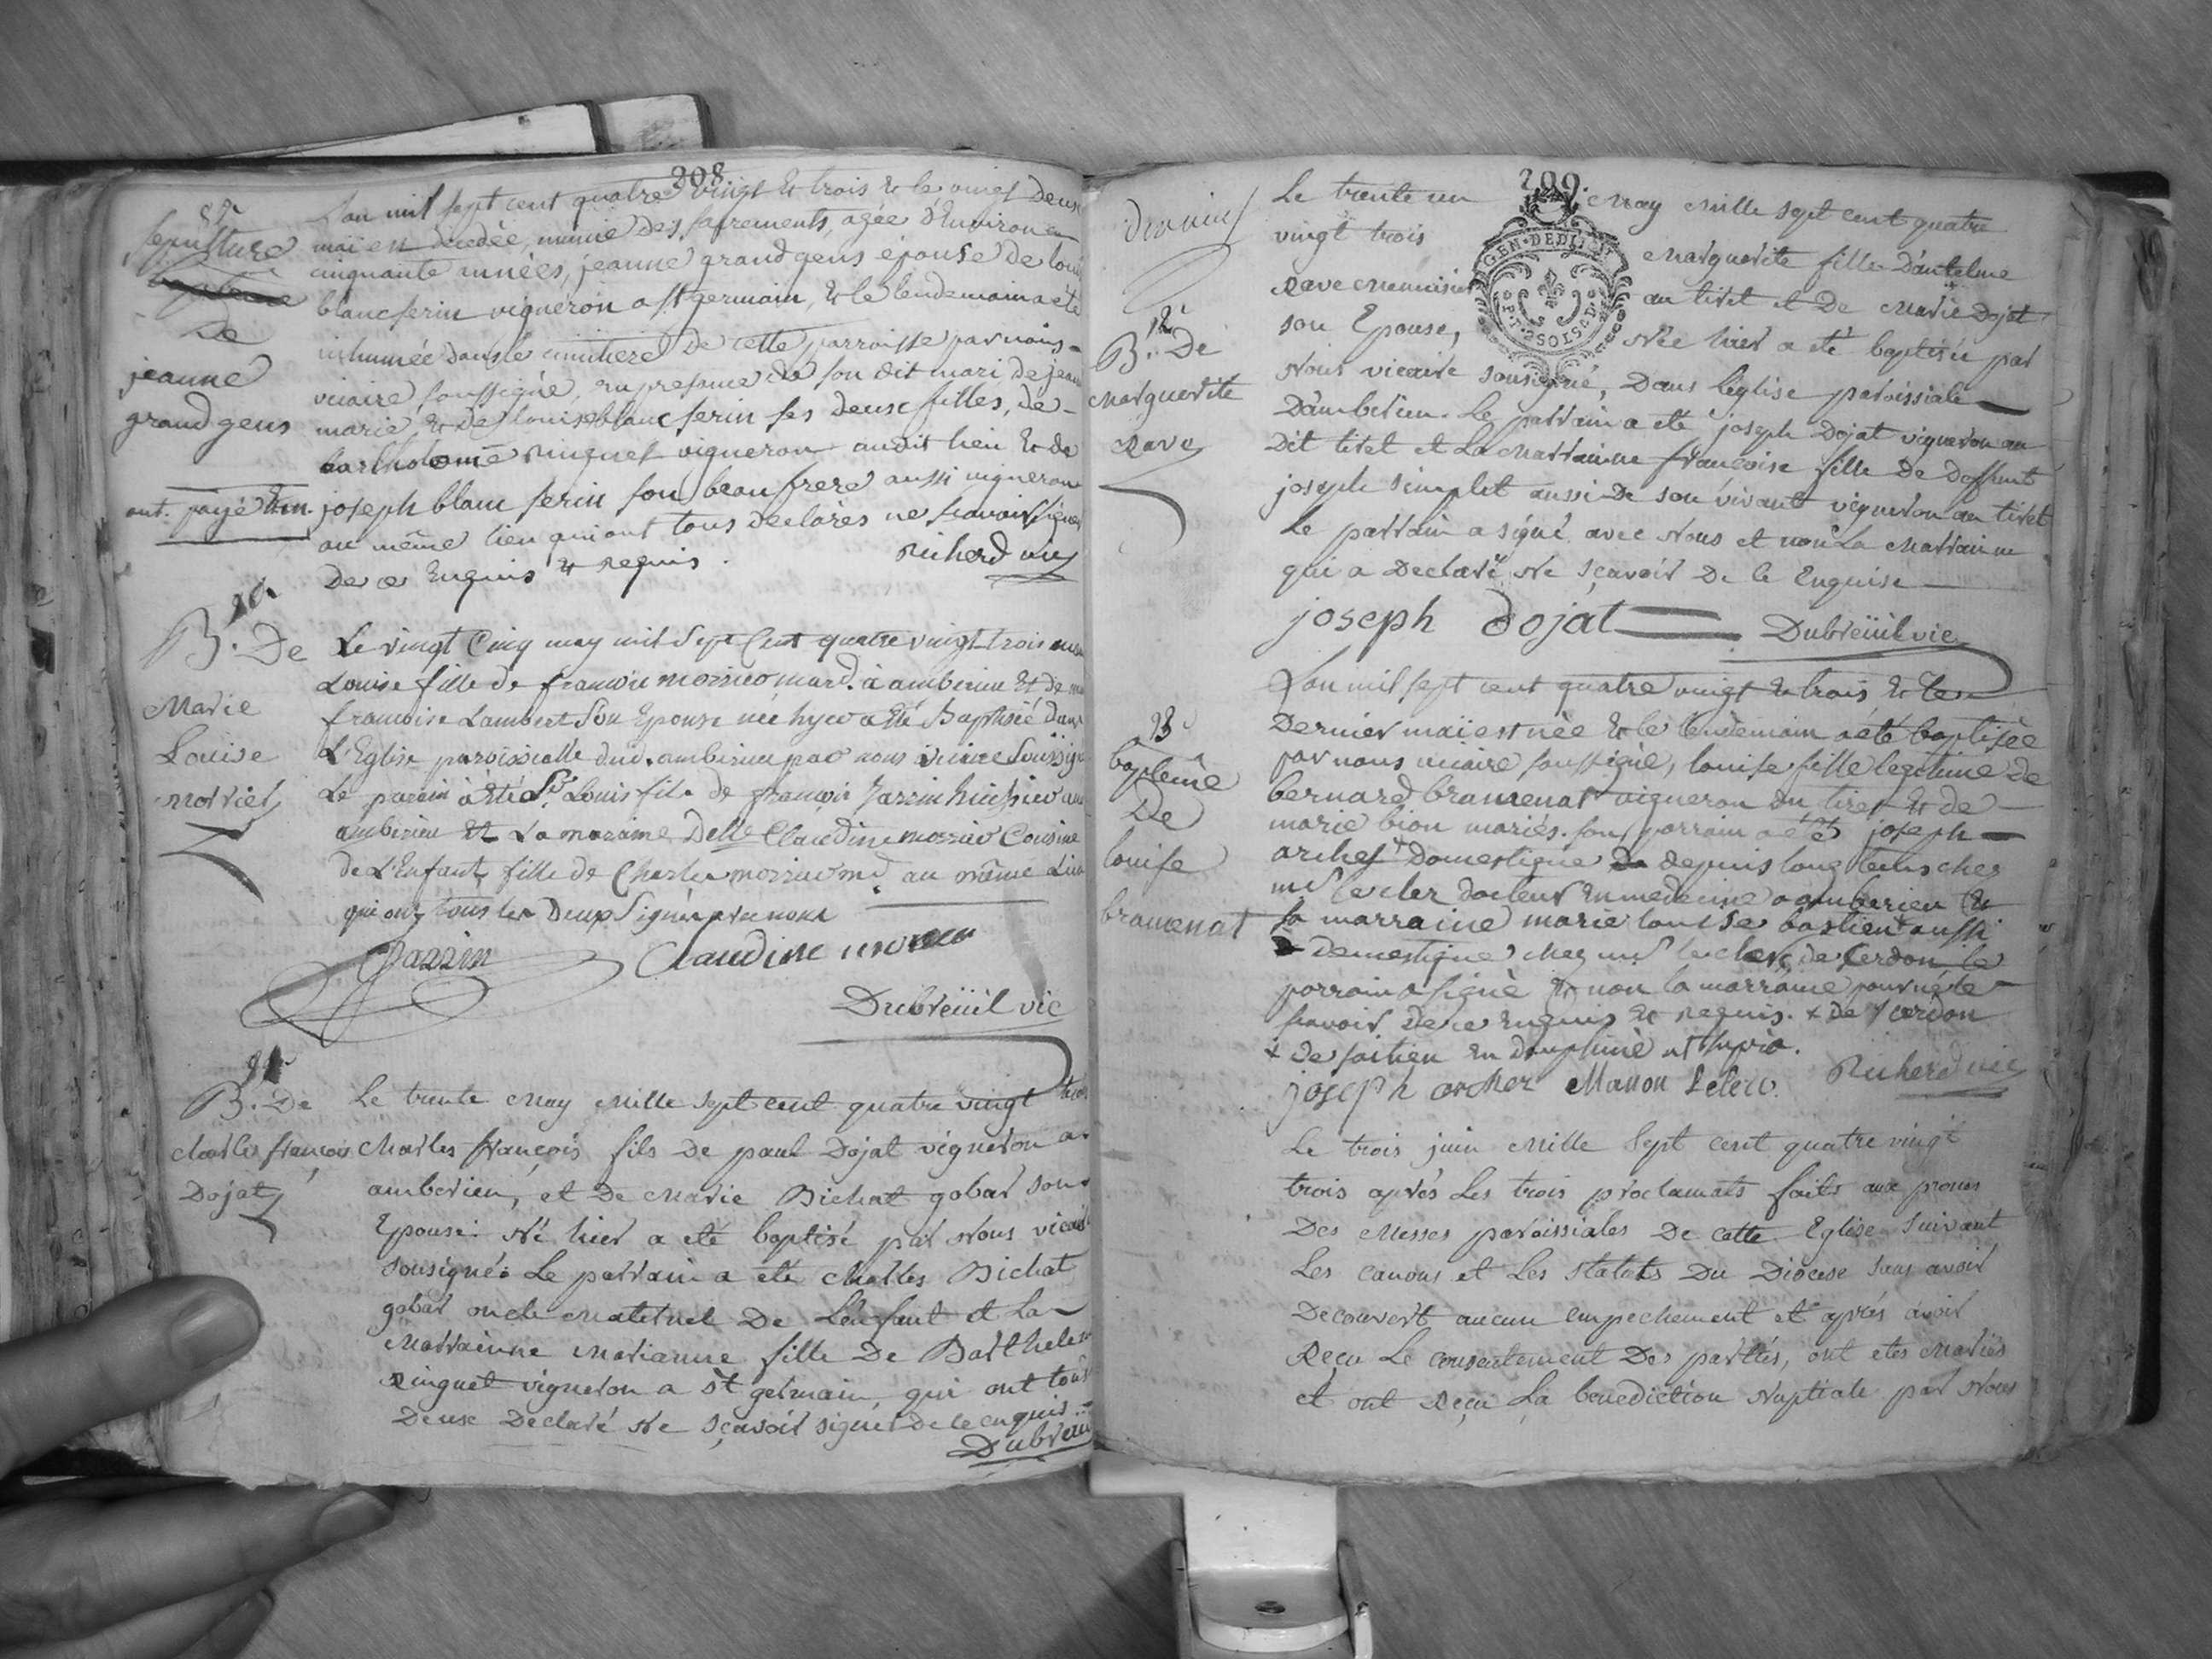 208
sepulture
De
jeanne
grand gens
ont payé
L'an mil sept cent quatre vingt & trois & le vingt deux
mai est decedée, munie des sacrements, agée d'environ
cinquante années, jeanne grand gens epouse de loui
blanc ferin vigneron a st germain, & le lendemain a été
inhumée dans le cimitiere de cette parroisse par nous
vicaire soussigné, en presence de son dit mari de jean
marie & de louise blanc ferin ses deux filles, de
bartholomé ringuet vigneron audit lieu & de
joseph blanc ferin son beau frere aussi vigneron
au même lieu qui ont tous declarés ne scavoir signer
De ce Enquis & requis.
Richerd vic
B. De
Marie
Louise
Morriel
Le vingt Cinq may mil Sept Cent quatre vingt trois
Louise fille de francois morrier mard. à amberieu Et de
francoise Lambert Son Epouse née hyer a Eté Baptisée dans
L'Eglise paroissialle dud. amberieu par nous vicaire Soussigné
Le parain à Eté Sr. Louis fils de françois
amberieu Et La maraine Delle Claudine morrier Cousine
de L'Enfant, fille de Charles morrier md au même Lieu
qui ont tous les Deux Signés avec nous
Claudine
Dubreüil vic
B. De
charles françois
Dojat
Le trente May Mille sept cent quatre vingt trois
Charles françois fils De paul Dojat vigneron a
amberieu, et De Marie Bichat gobar son
Epouse. Né hier a eté baptisé par Nous vicair
sousigné. Le parrain a eté Charles Bichat
gobar oncle Maternel De L'enfant et La
Marrainne Marianne fille De Barthele
Ringuet vigneron a St germain, qui ont tous
Deux Declaré Ne Sçavoir signer De ce enquis
Dubreüil
209.
B. De
Marguerite
Rave
Le trente un May Mille sept cent quatre
vingt trois Marguerite fille D'antelme
Rave au tiret et De Marie Dojat
son Epouse, Née hier a eté baptisée par
Nous vicaire sousigné, Dans l'eglise paroissiale
D'amberieu. Le parrain a eté joseph Dojat vigneron au
Dit tiret et La Marrainne françoise fille De Deffunt
joseph simplet aussi De son vivant vigneron au tiret
Le parrain a signé avec Nous et non La Marrainne
qui a Declaré Ne Sçavoir De ce Enquise
joseph dojat
Dubreüil vic
baptême
De
louise
bramenat
L'an mil sept cent quatre vingt & trois & le
Dernier mai est née & le lendemain a été baptisée
par nous vicaire soussigné, louise fille legitime de
bernard bramenat vigneron au tiret & de
marie bion mariés. son parrain a été joseph
archer + Domestique depuis long tems chez
mr leclerc docteur en medecine a amberieu &
sa marraine marie louise bastien + aussi
Domestique chez mr leclerc de Cerdon, le
parrain a signé & non la marraine pour ne le
scavoir de ce enquis & requis. + de Cerdon
+ de en dauphiné ut supra.
joseph archer Manon Leclerc Richerd vic
Le trois juin Mille Sept cent quatre vingt
trois aprés Les trois proclamats faits aux prones
Des Messes paroissiales De cette Eglise Suivant
Les canons et Les statuts Du Diocese Sans avoir
Decouvert aucun empechement et aprés avoir
Reçu Le consentement Des parties, ont etés Mariés
et ont Reçu La benediction Nuptiale par Nous